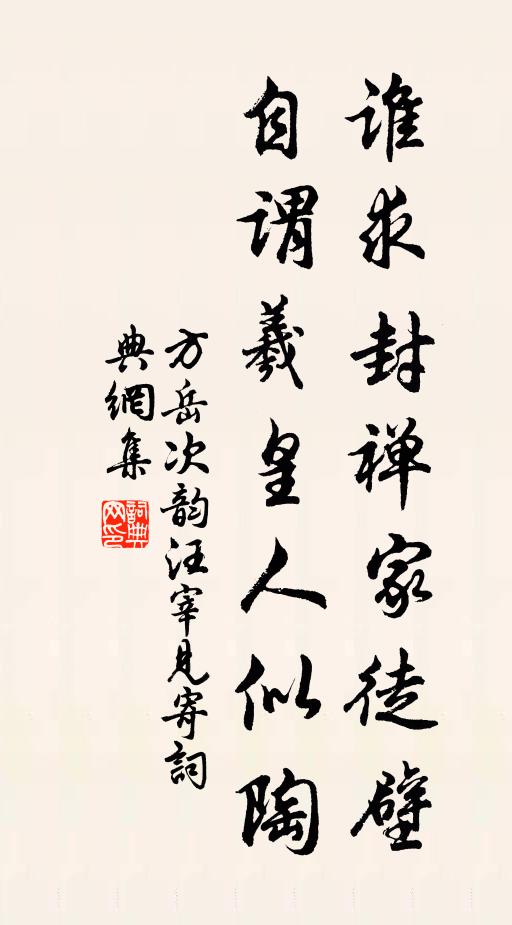 谁求封禅家徒壁
自谓羲皇人似陶
方岳次韵汪宰见寄词
典網集
詞典網印